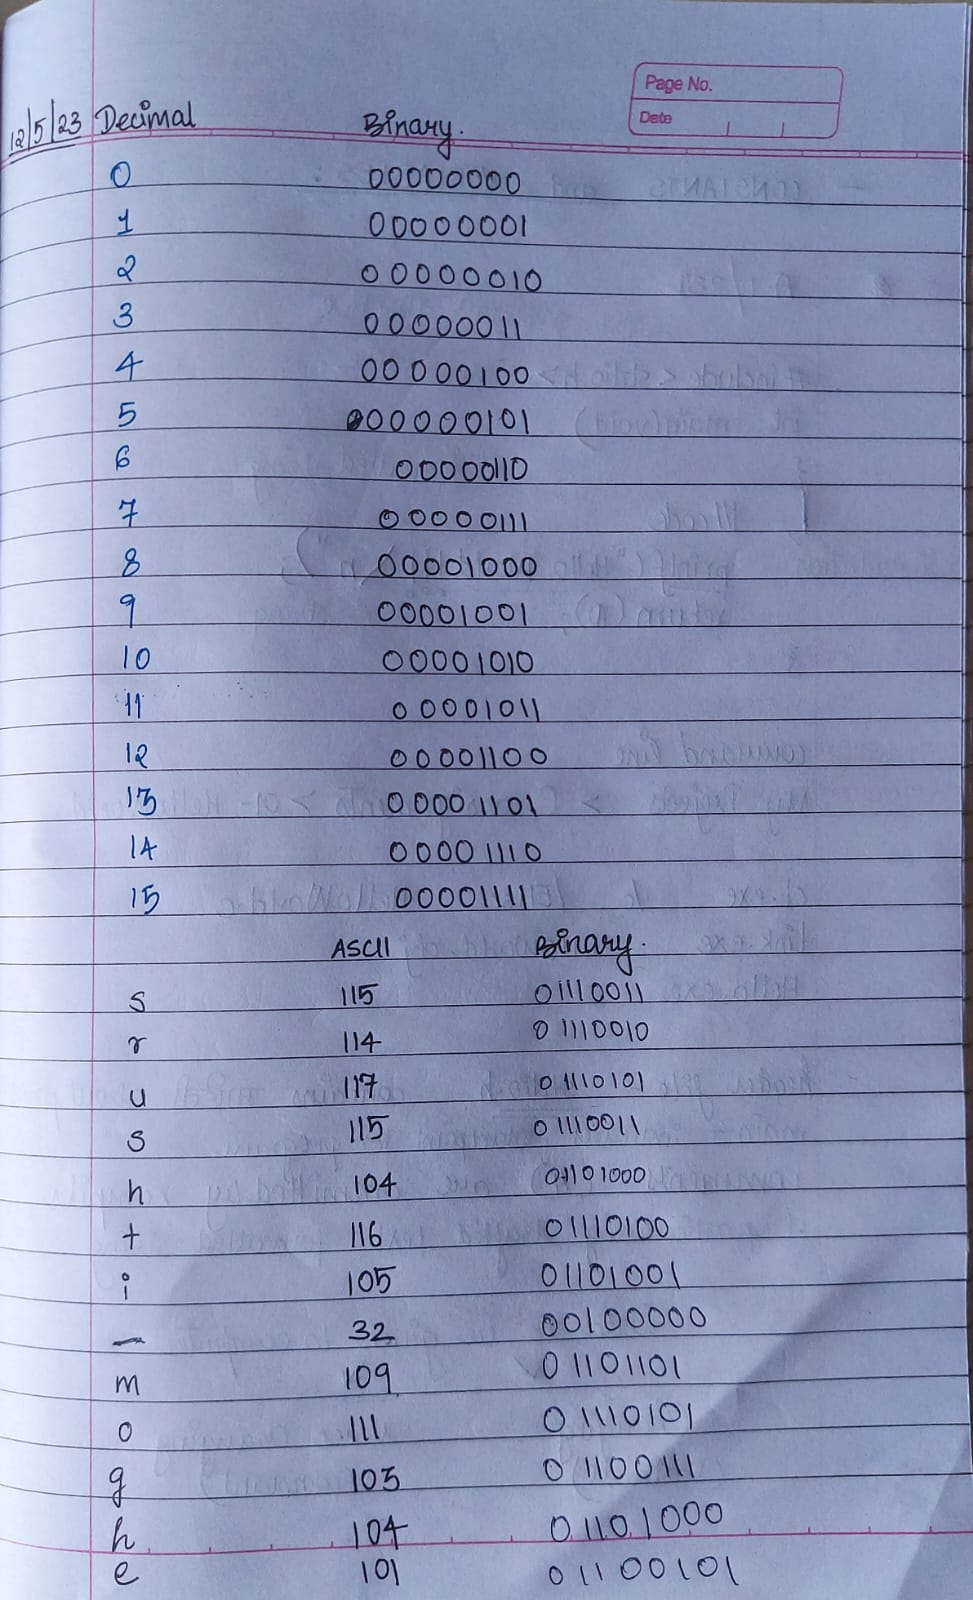 Page No.
Date
12/5/23 Decimal Binary.
0 00000000
1 00000001
2 00000010
3 00000011
4 00000100
5 000000101
6 0000110
7 00000111
8 00001000
9 00001001
10 00001010
11 00001011
12 00001100
13 00001101
14 00001110
15 00001111
ASCII Binary.
s 115 01110011
r 114 01110010
u 117 01110101
s 115 01110011
h 104 01101000
t 116 01110100
i 105 01101001
_ 32 00100000
m 109 01101101
o 111 01110101
g 103 01100111
h 104 01101000
e 101 01100101